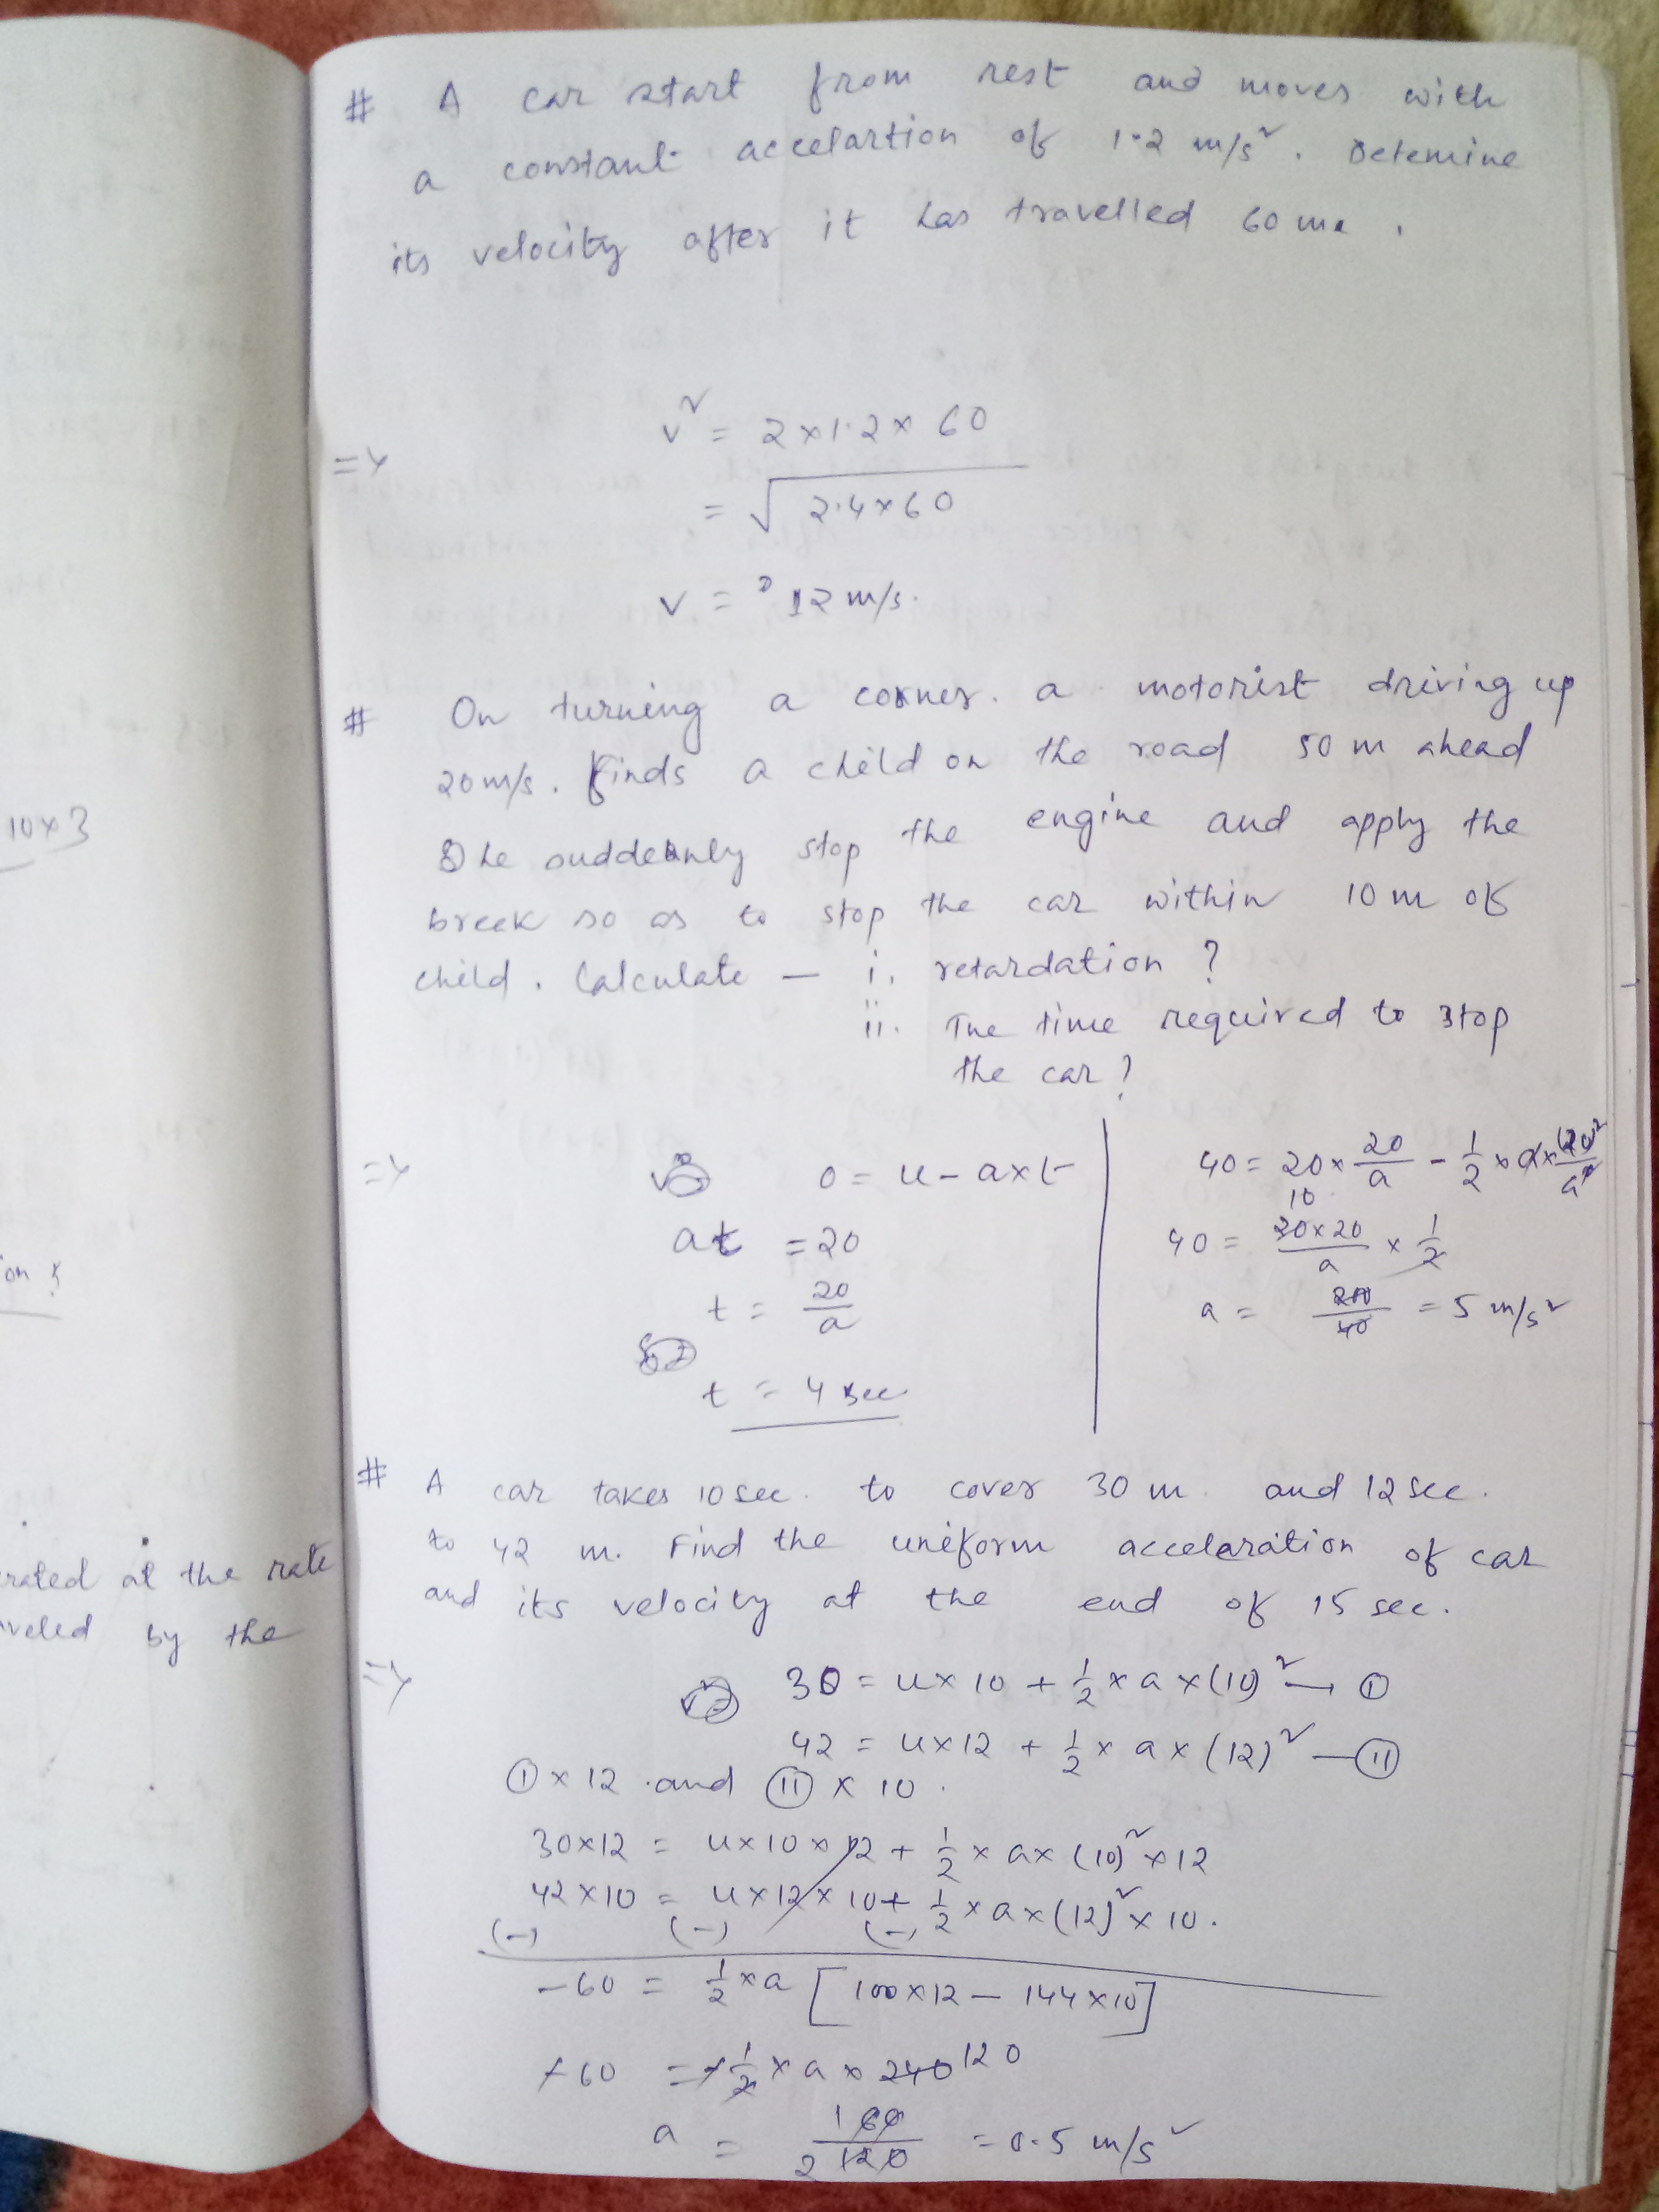 10×3
on ?
erated at the rate
aveled by the
# A car start from rest and moves with
a constant accelartion of 1.2 m/s². Detemine
its velocity after it has travelled 60 m.
=> v² = 2×1.2×60
= √2.4×60
v = 12 m/s.
# On turning a corner. a motorist driving up
20m/s. finds a child on the road 50 m ahead
he suddenly stop the engine and apply the
break so as to stop the car within 10 m of
child. Calculate — i. retardation ?
ii. The time required to stop
the car ?
=> 0 = u - a×t
at = 20
t = 20/a
t = 4 sec
40 = 20 × 20/a - 1/2 × a × (20)²/a²
40 = 20×20/a × 1/2
10
a = 200/40 = 5 m/s²
# A car takes 10 sec. to cover 30 m. and 12 sec.
to 42 m. Find the uniform acceleration of car
and its velocity at the end of 15 sec.
=> 30 = u×10 + 1/2 × a × (10)² → (I)
42 = u×12 + 1/2 × a × (12)² — (II)
(I) × 12 and (II) × 10.
30×12 = u×10×12 + 1/2 × a× (10)² ×12
42×10 = u×12×10+ 1/2 ×a×(12)² × 10.
(-) (-) (-)
-60 = 1/2 ×a [100×12 - 144×10]
-60 = -1/2 × a × 240 120
a = 1 60/2 120 = 0.5 m/s²